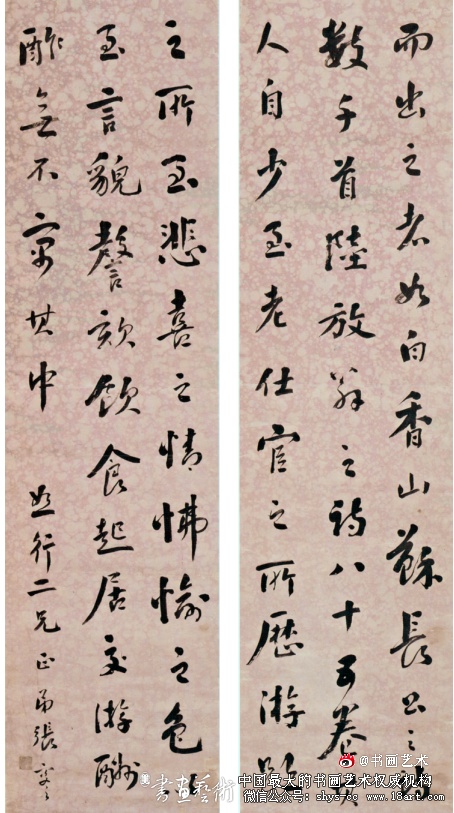 而出之者如白香山蘇長公之
數千首陸放翁之詩八十五卷
人自少至老仕宦之所歷游
之所至悲喜之情怫愉之色
至言貌謦欬飲食起居交游酬
酢無不寓其中
行二兄正弟張謇
@书画艺术
書畫藝術
中国最大的书画艺术权威机构
微信公众号: shys-cc www.18art.com